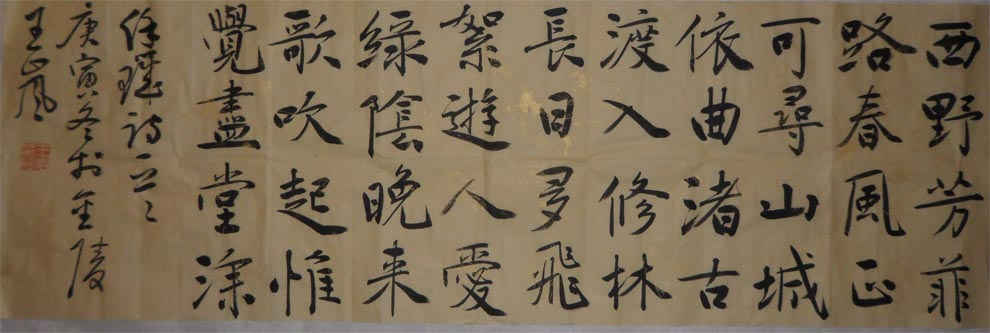 西野芳菲
路春風正
可尋山城
依曲渚古
渡入修林
長日多飛
絮遊人愛
綠陰晚来
歌吹起惟
覺畫堂深
徐璣詩一首
庚寅冬於金陵
王風